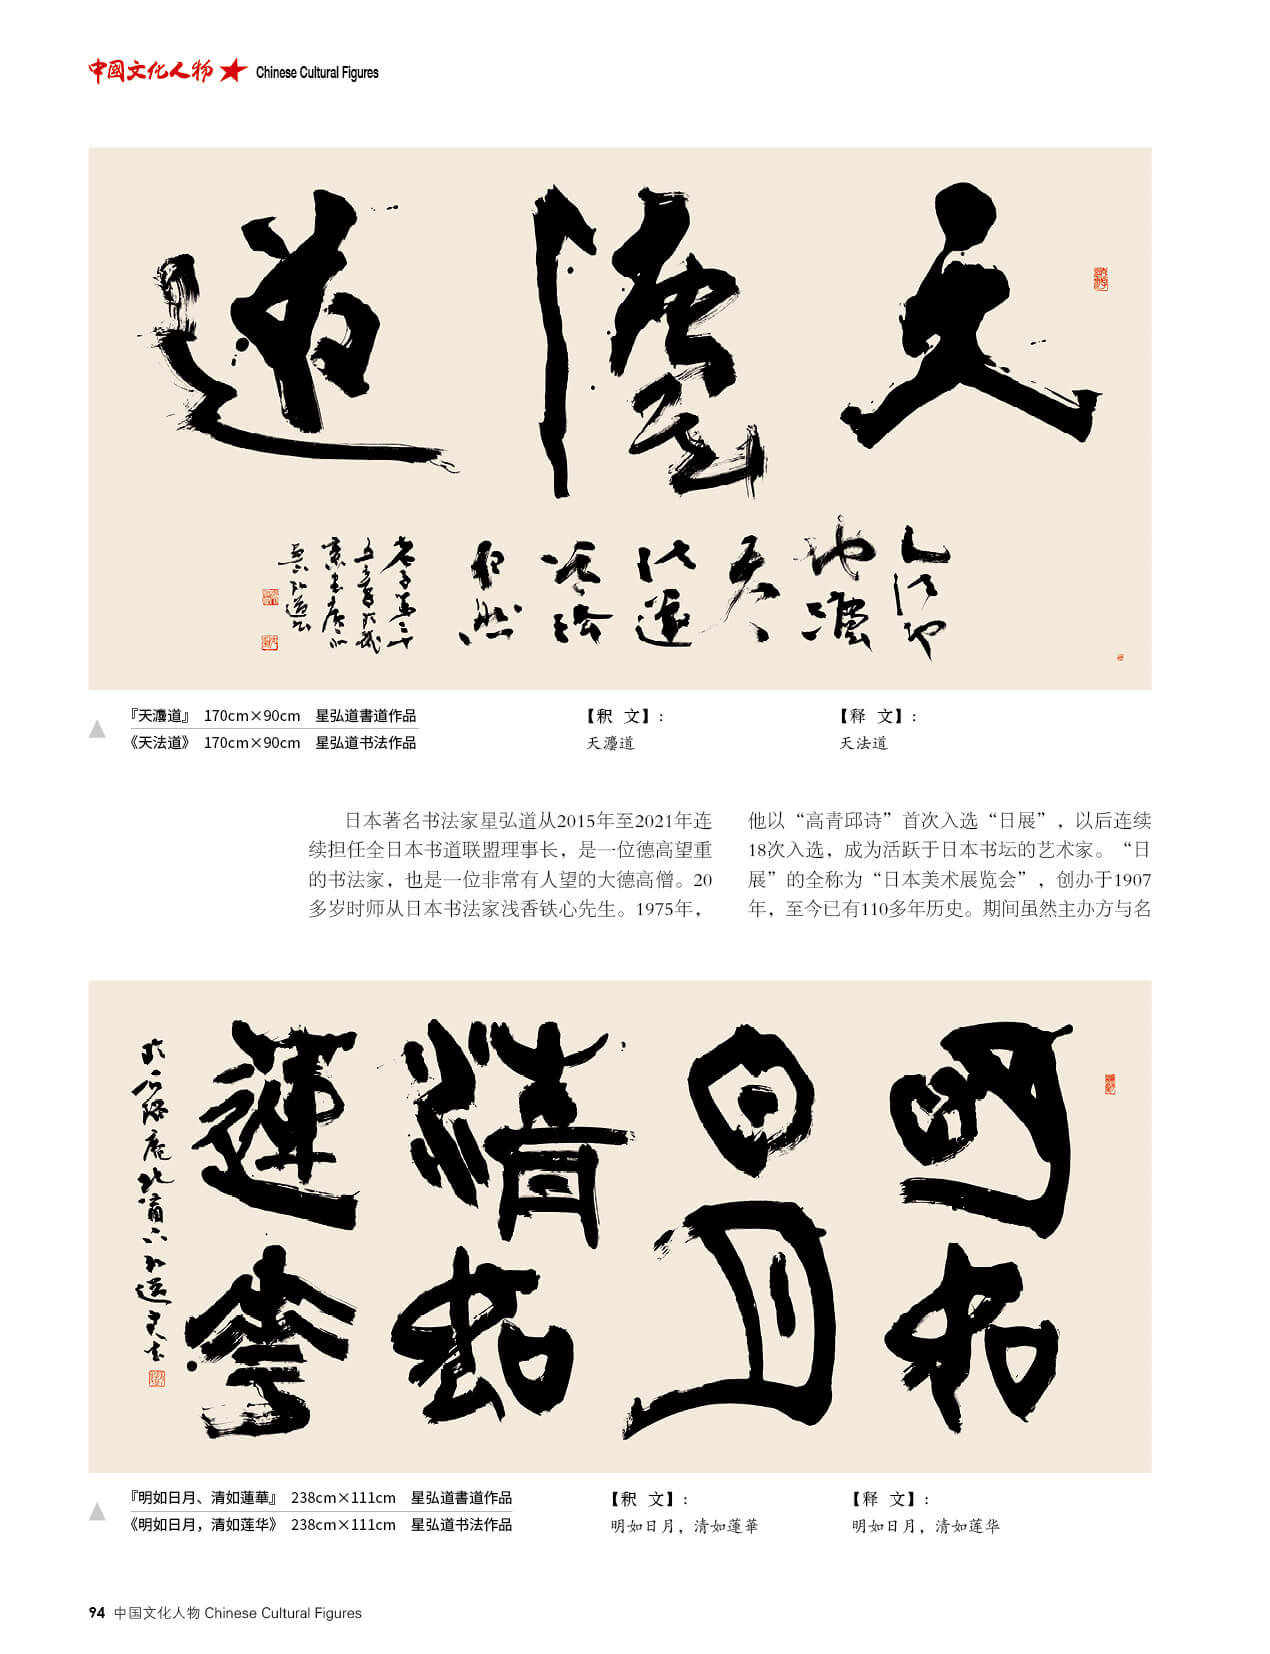 中國文化人物 ★ Chinese Cultural Figures
天灋道
人法地
地灋
天
天
法道
道法
自然
老子第二十
五章
『天灋道』 170cm×90cm 星弘道書道作品
《天法道》 170cm×90cm 星弘道书法作品
【釈 文】：
天灋道
【释 文】：
天法道
日本著名书法家星弘道从2015年至2021年连
续担任全日本书道联盟理事长，是一位德高望重
的书法家，也是一位非常有人望的大德高僧。20
多岁时师从日本书法家浅香铁心先生。1975年，
他以“高青邱诗”首次入选“日展”，以后连续
18次入选，成为活跃于日本书坛的艺术家。“日
展”的全称为“日本美术展览会”，创办于1907
年，至今已有110多年历史。期间虽然主办方与名
明如
日月
清如
蓮華
『明如日月、清如蓮華』 238cm×111cm 星弘道書道作品
《明如日月，清如莲华》 238cm×111cm 星弘道书法作品
【釈 文】：
明如日月，清如蓮華
【释 文】：
明如日月，清如莲华
94 中国文化人物 Chinese Cultural Figures